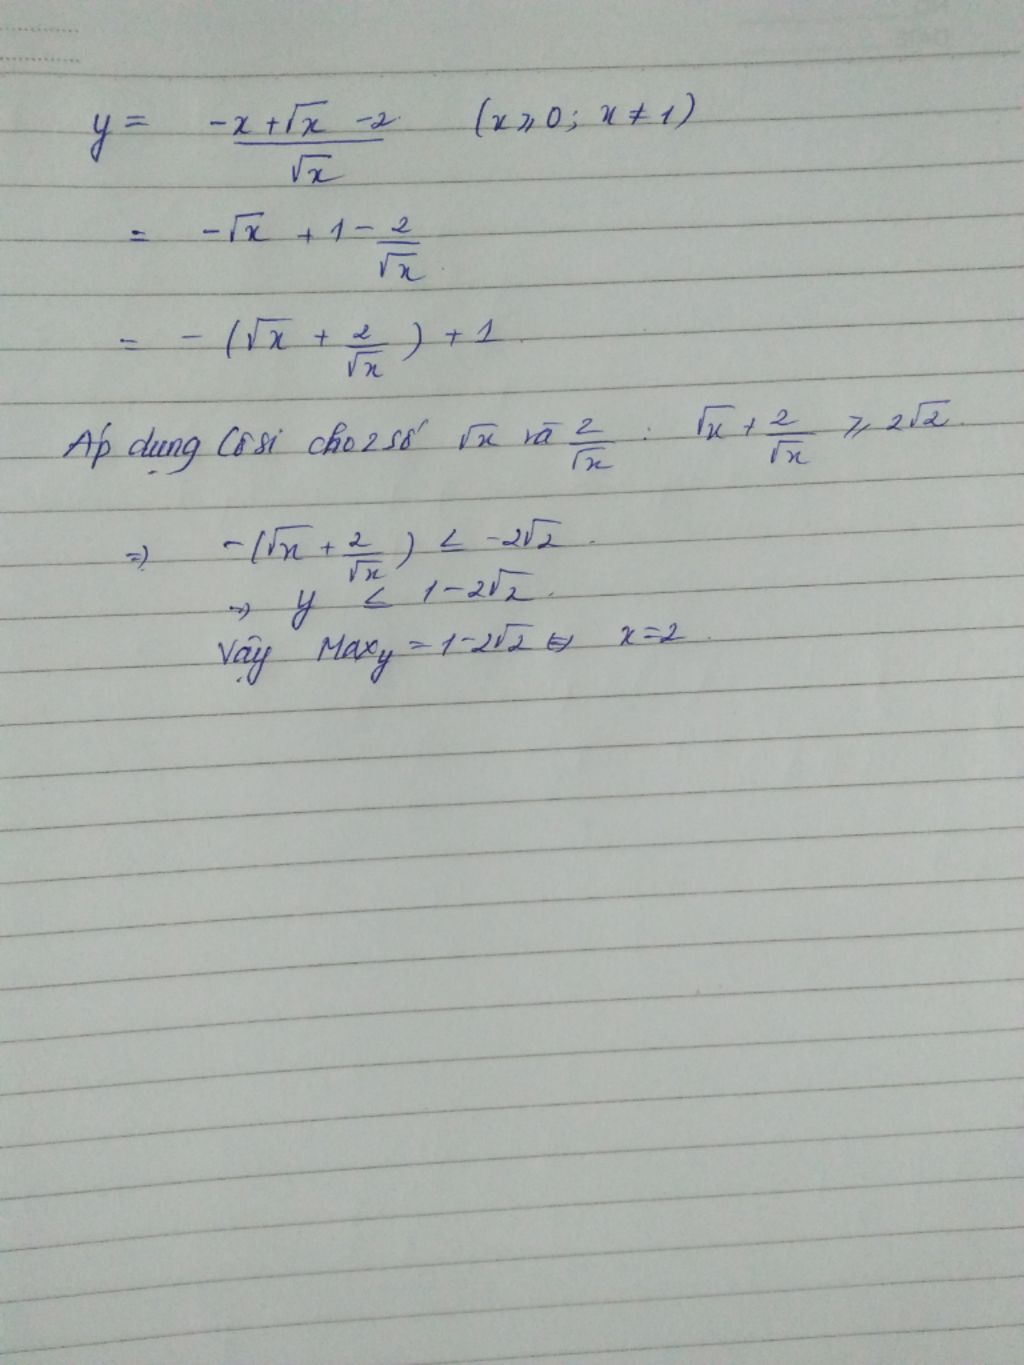 y = (-x + √x - 2)/√x (x ⩾ 0; x ≠ 1)
= -√x + 1 - 2/√x
= - (√x + 2/√x) + 1
Áp dụng Côsi cho 2 số √x và 2/√x : √x + 2/√x ⩾ 2√2.
⇒ -(√x + 2/√x) ≤ -2√2.
⇒ y ≤ 1-2√2.
Vậy Max y = 1-2√2 ⇔ x=2.